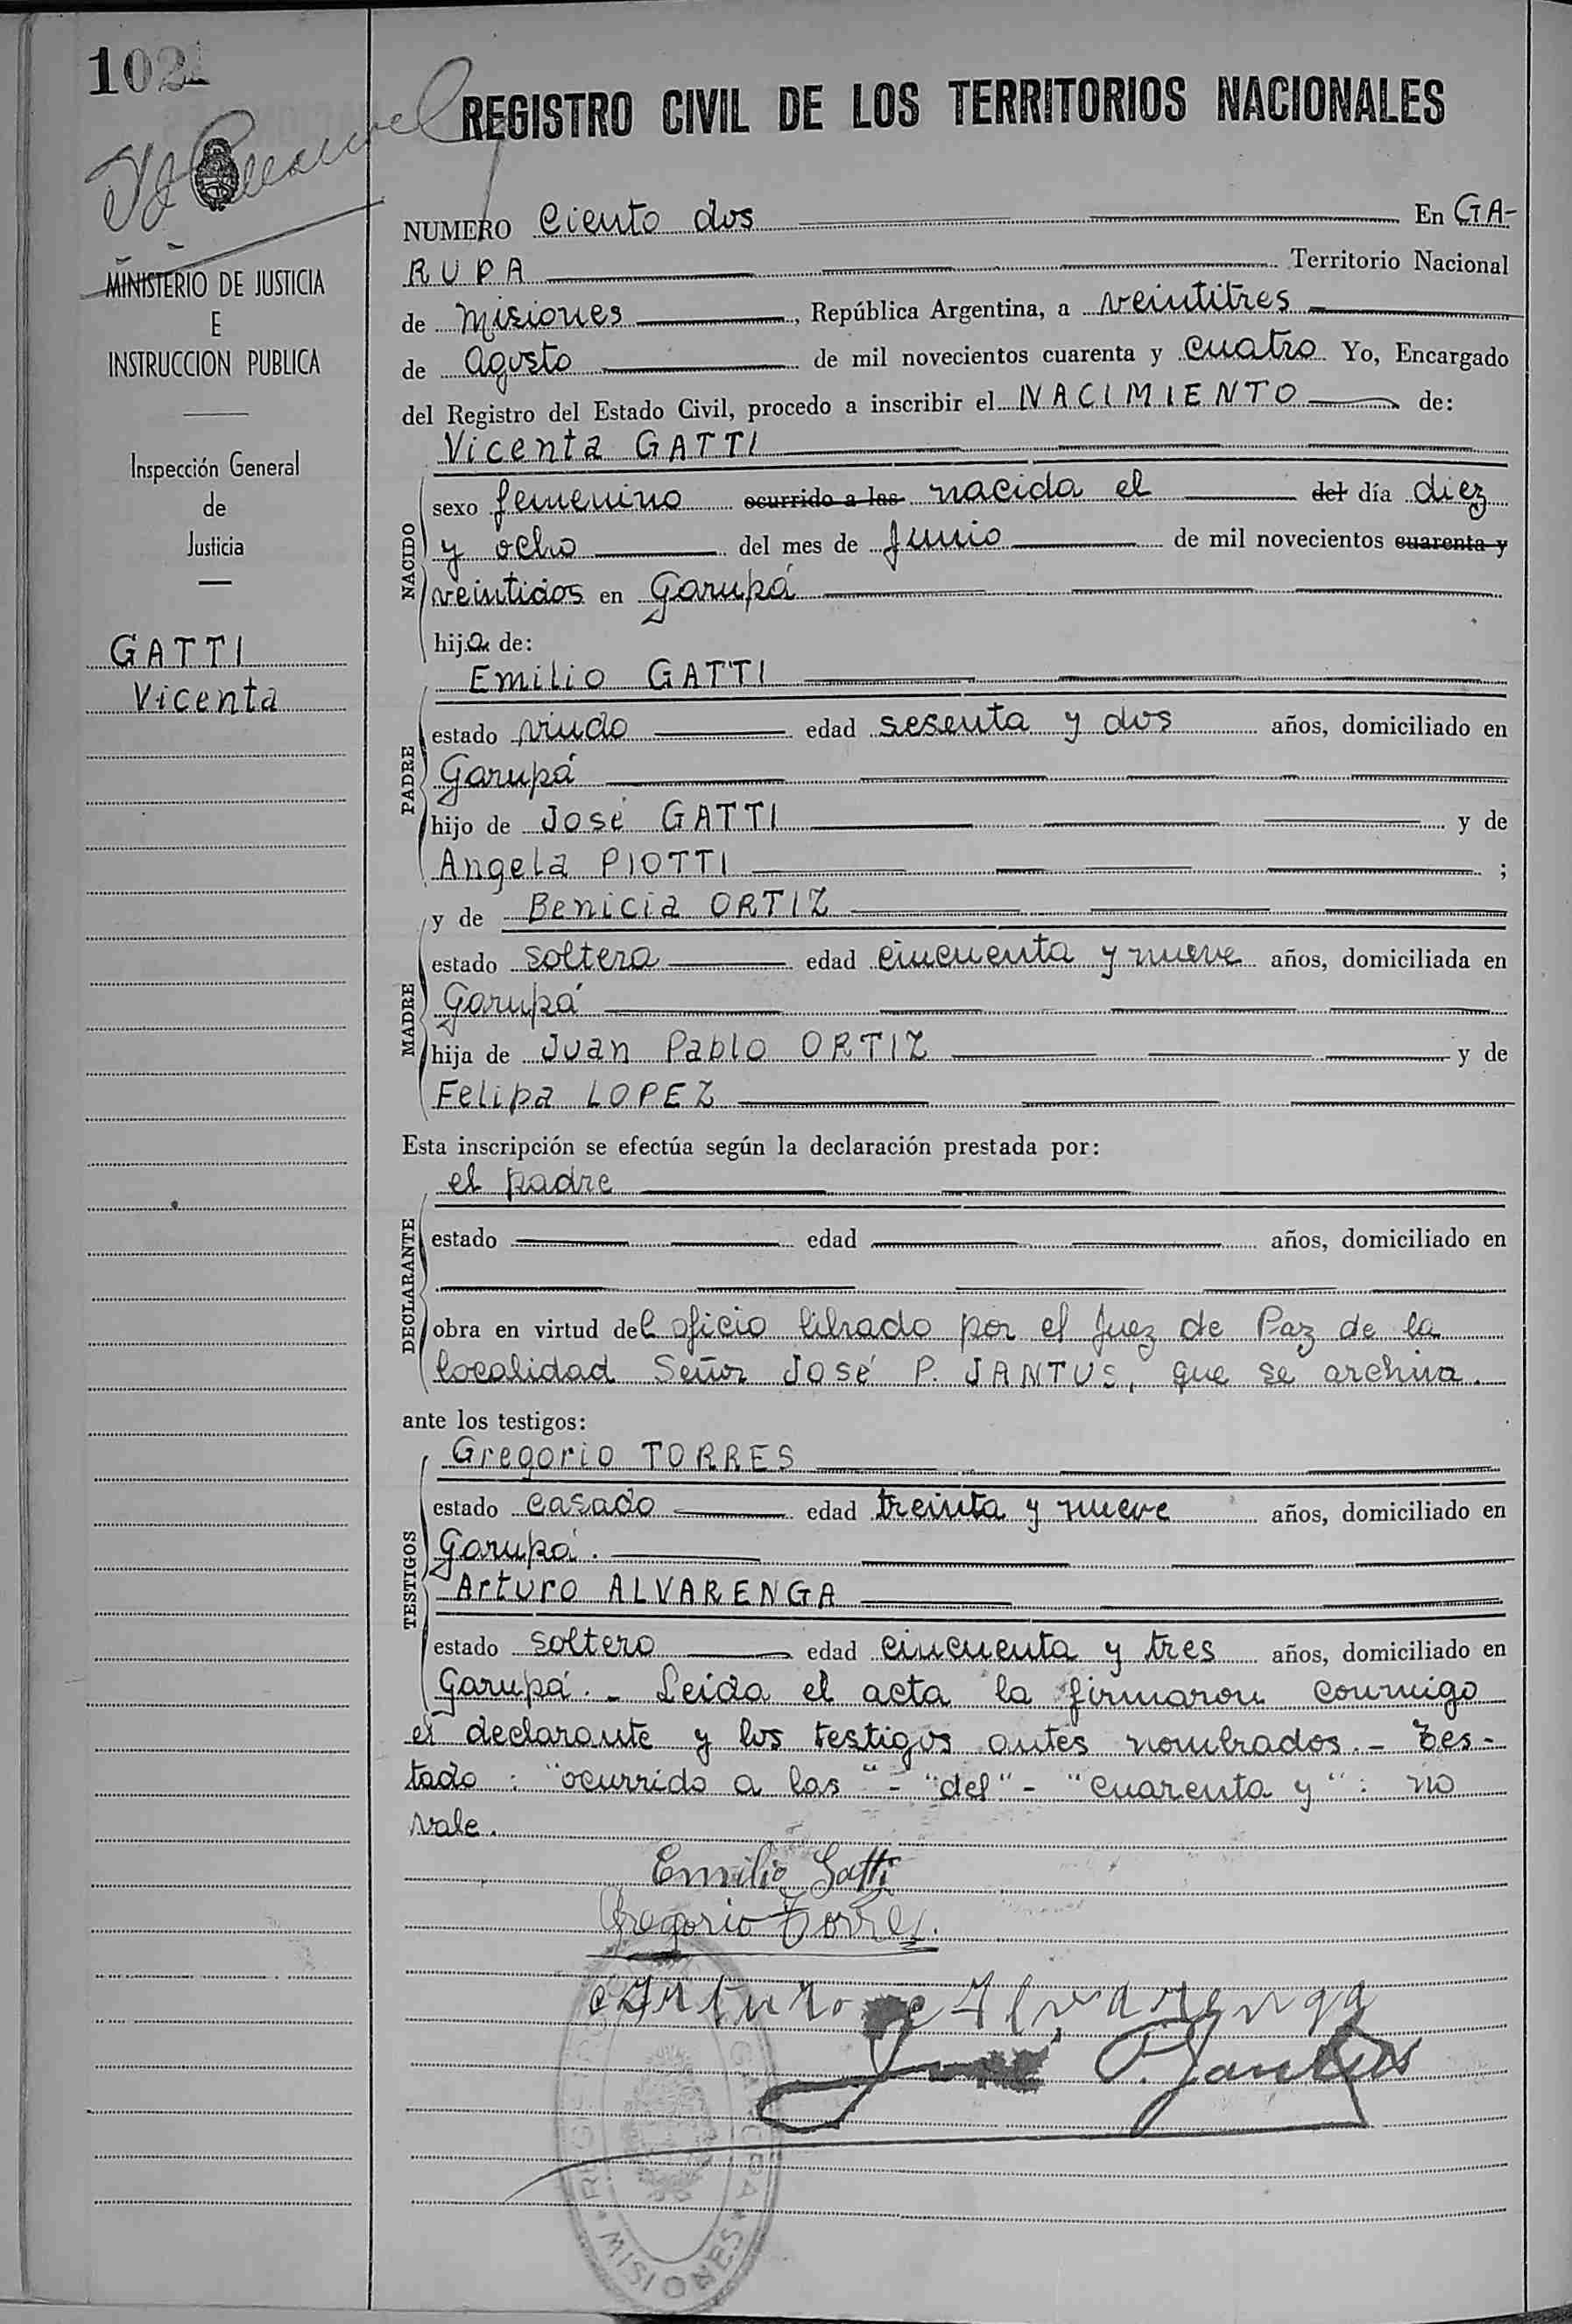 102
REGISTRO CIVIL DE LOS TERRITORIOS NACIONALES
MINISTERIO DE JUSTICIA
E
INSTRUCCION PUBLICA
Inspección General
de
Justicia
GATTI
Vicenta
NUMERO Ciento dos En GA-
RUPA Territorio Nacional
de Misiones, República Argentina, a veintitres
de Agosto de mil novecientos cuarenta y cuatro Yo, Encargado
del Registro del Estado Civil, procedo a inscribir el NACIMIENTO de:
Vicenta GATTI
NACIDO
sexo femenino ocurrido a las nacida el del día diez
y ocho del mes de Junio de mil novecientos cuarenta y
veintidos en Garupá
hija de:
Emilio GATTI
PADRE
estado viudo edad sesenta y dos años, domiciliado en
Garupá
hijo de José GATTI y de
Angela PIOTTI ;
y de Benicia ORTIZ
MADRE
estado soltera edad cincuenta y nueve años, domiciliada en
Garupá
hija de Juan Pablo ORTIZ y de
Felipa LOPEZ
Esta inscripción se efectúa según la declaración prestada por:
el padre
DECLARANTE
estado edad años, domiciliado en
obra en virtud del oficio librado por el Juez de Paz de la
localidad Señor José P. JANTUS, que se archiva.
ante los testigos:
Gregorio TORRES
TESTIGOS
estado casado edad treinta y nueve años, domiciliado en
Garupá.
Arturo ALVARENGA
estado soltero edad cincuenta y tres años, domiciliado en
Garupá. - Leída el acta la firmaron conmigo
el declarante y los testigos antes nombrados. - Tes-
tado: "ocurrido a las" - "del" - "cuarenta y": no
vale.
Emilio Gatti
Gregorio Torres.
Arturo Alvarenga
José P. Jantus
MISIONES